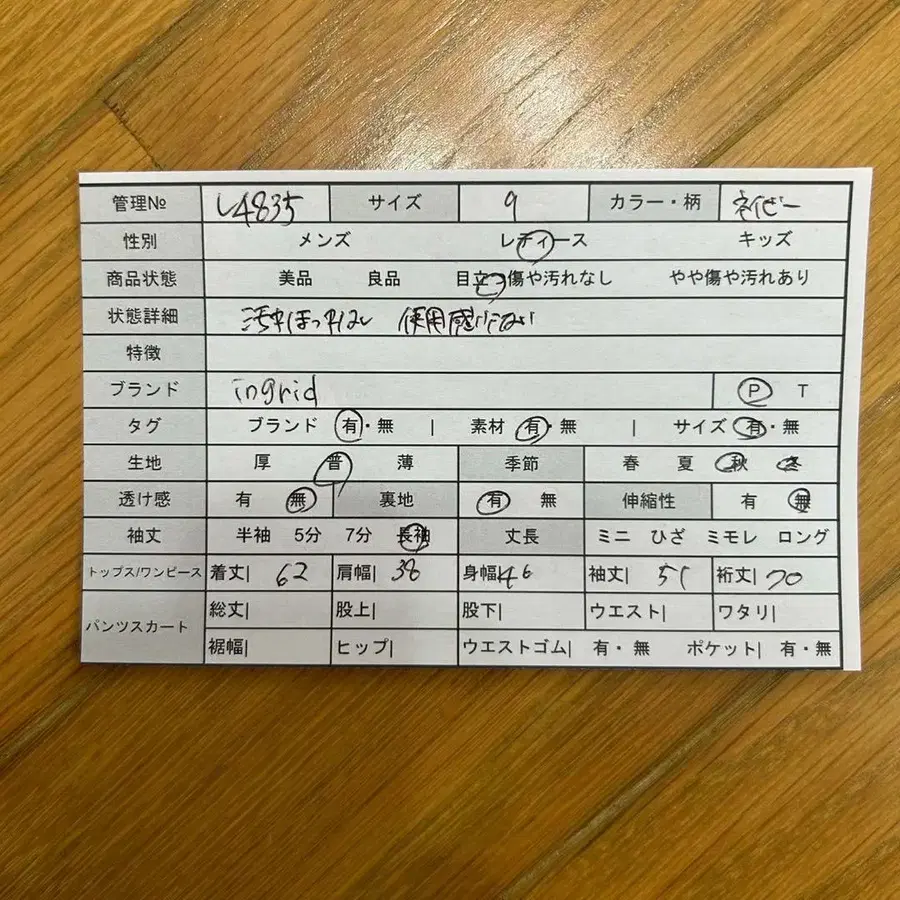 管理№ L4835 サイズ 9 カラー・柄 ネイビー
性別 メンズ レディース キッズ
商品状態 美品 良品 目立つ傷や汚れなし やや傷や汚れあり
状態詳細 使用感
特徴
ブランド ingrid P T
タグ ブランド 有・無 | 素材 有・無 | サイズ 有・無
生地 厚 普 薄 季節 春 夏 秋 冬
透け感 有 無 裏地 有 無 伸縮性 有 無
袖丈 半袖 5分 7分 長袖 丈長 ミニ ひざ ミモレ ロング
トップス/ワンピース 着丈| 62 肩幅| 38 身幅 46 袖丈| 51 裄丈| 70
パンツスカート 総丈| 股上| 股下| ウエスト| ワタリ|
裾幅| ヒップ| ウエストゴム| 有・無 ポケット| 有・無